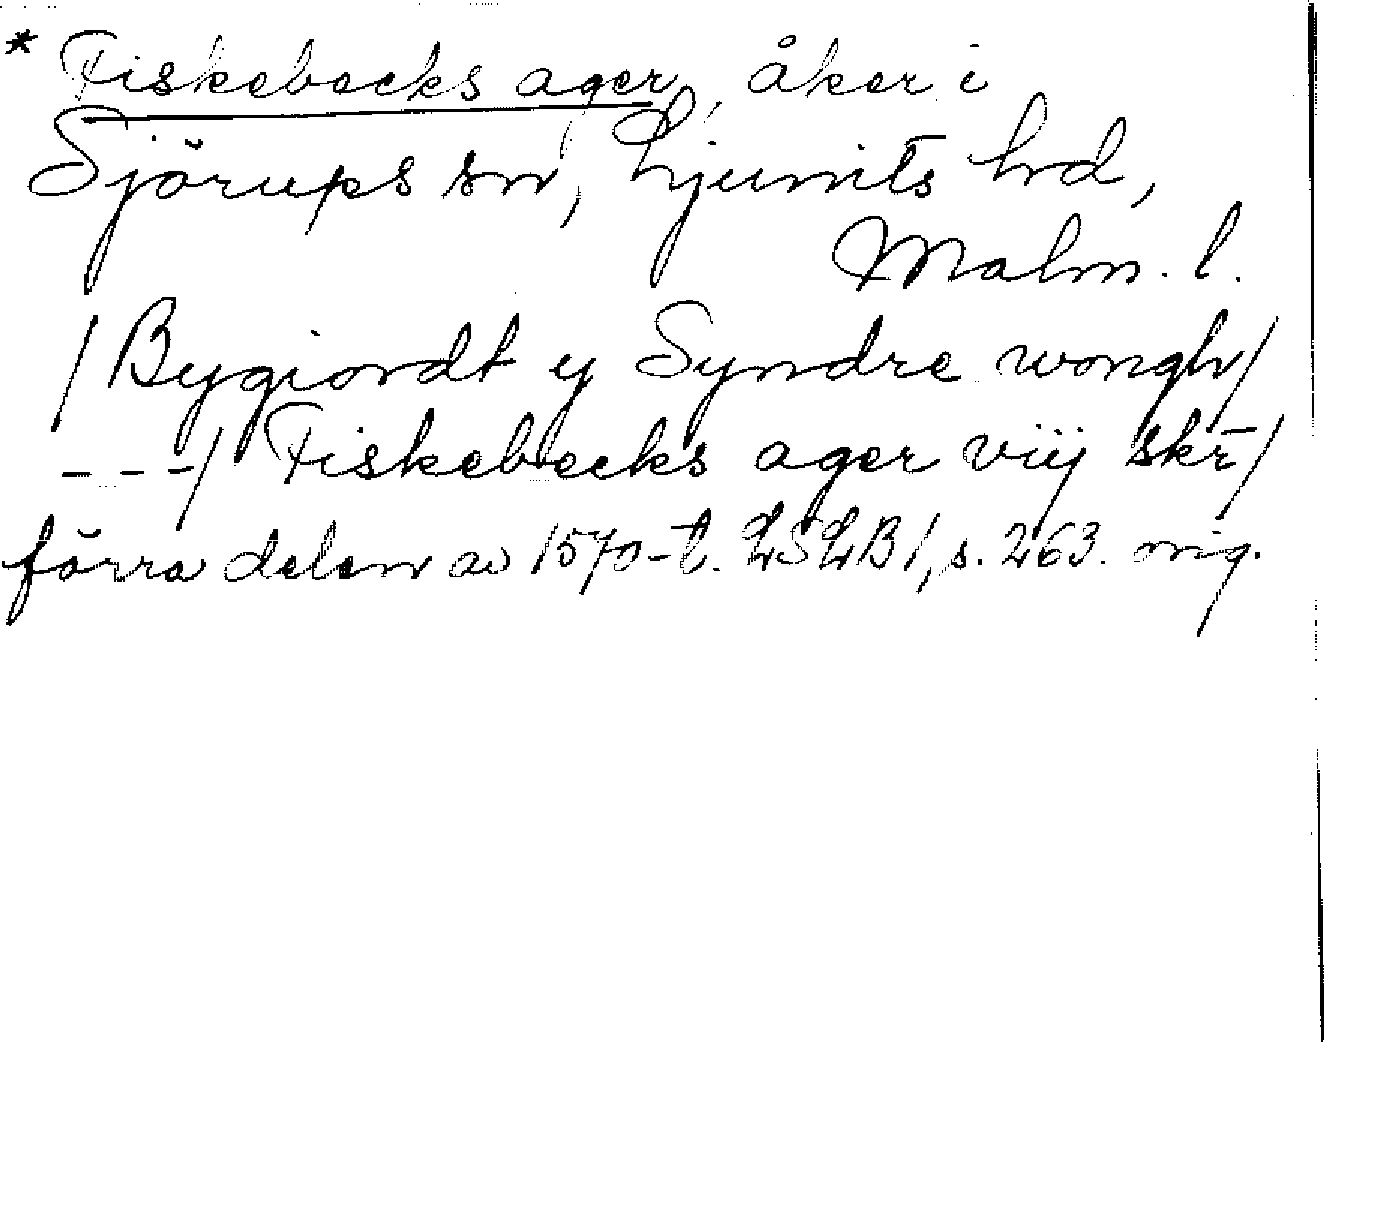 * Fiskebecks ager, åker i
Sjörups sn, Ljunits hd,
Malm. l.
/Bygiordt y Syndre wongh/
---/ Fiskebecks ager viij skr̄/
förra delen av 1570-t. LSLB1, s. 263. orig.